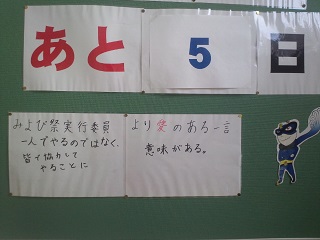 あと 5 日
みよび祭実行委員
一人でやるのではなく、
皆で協力して
やることに
より愛のある一言
意味がある。